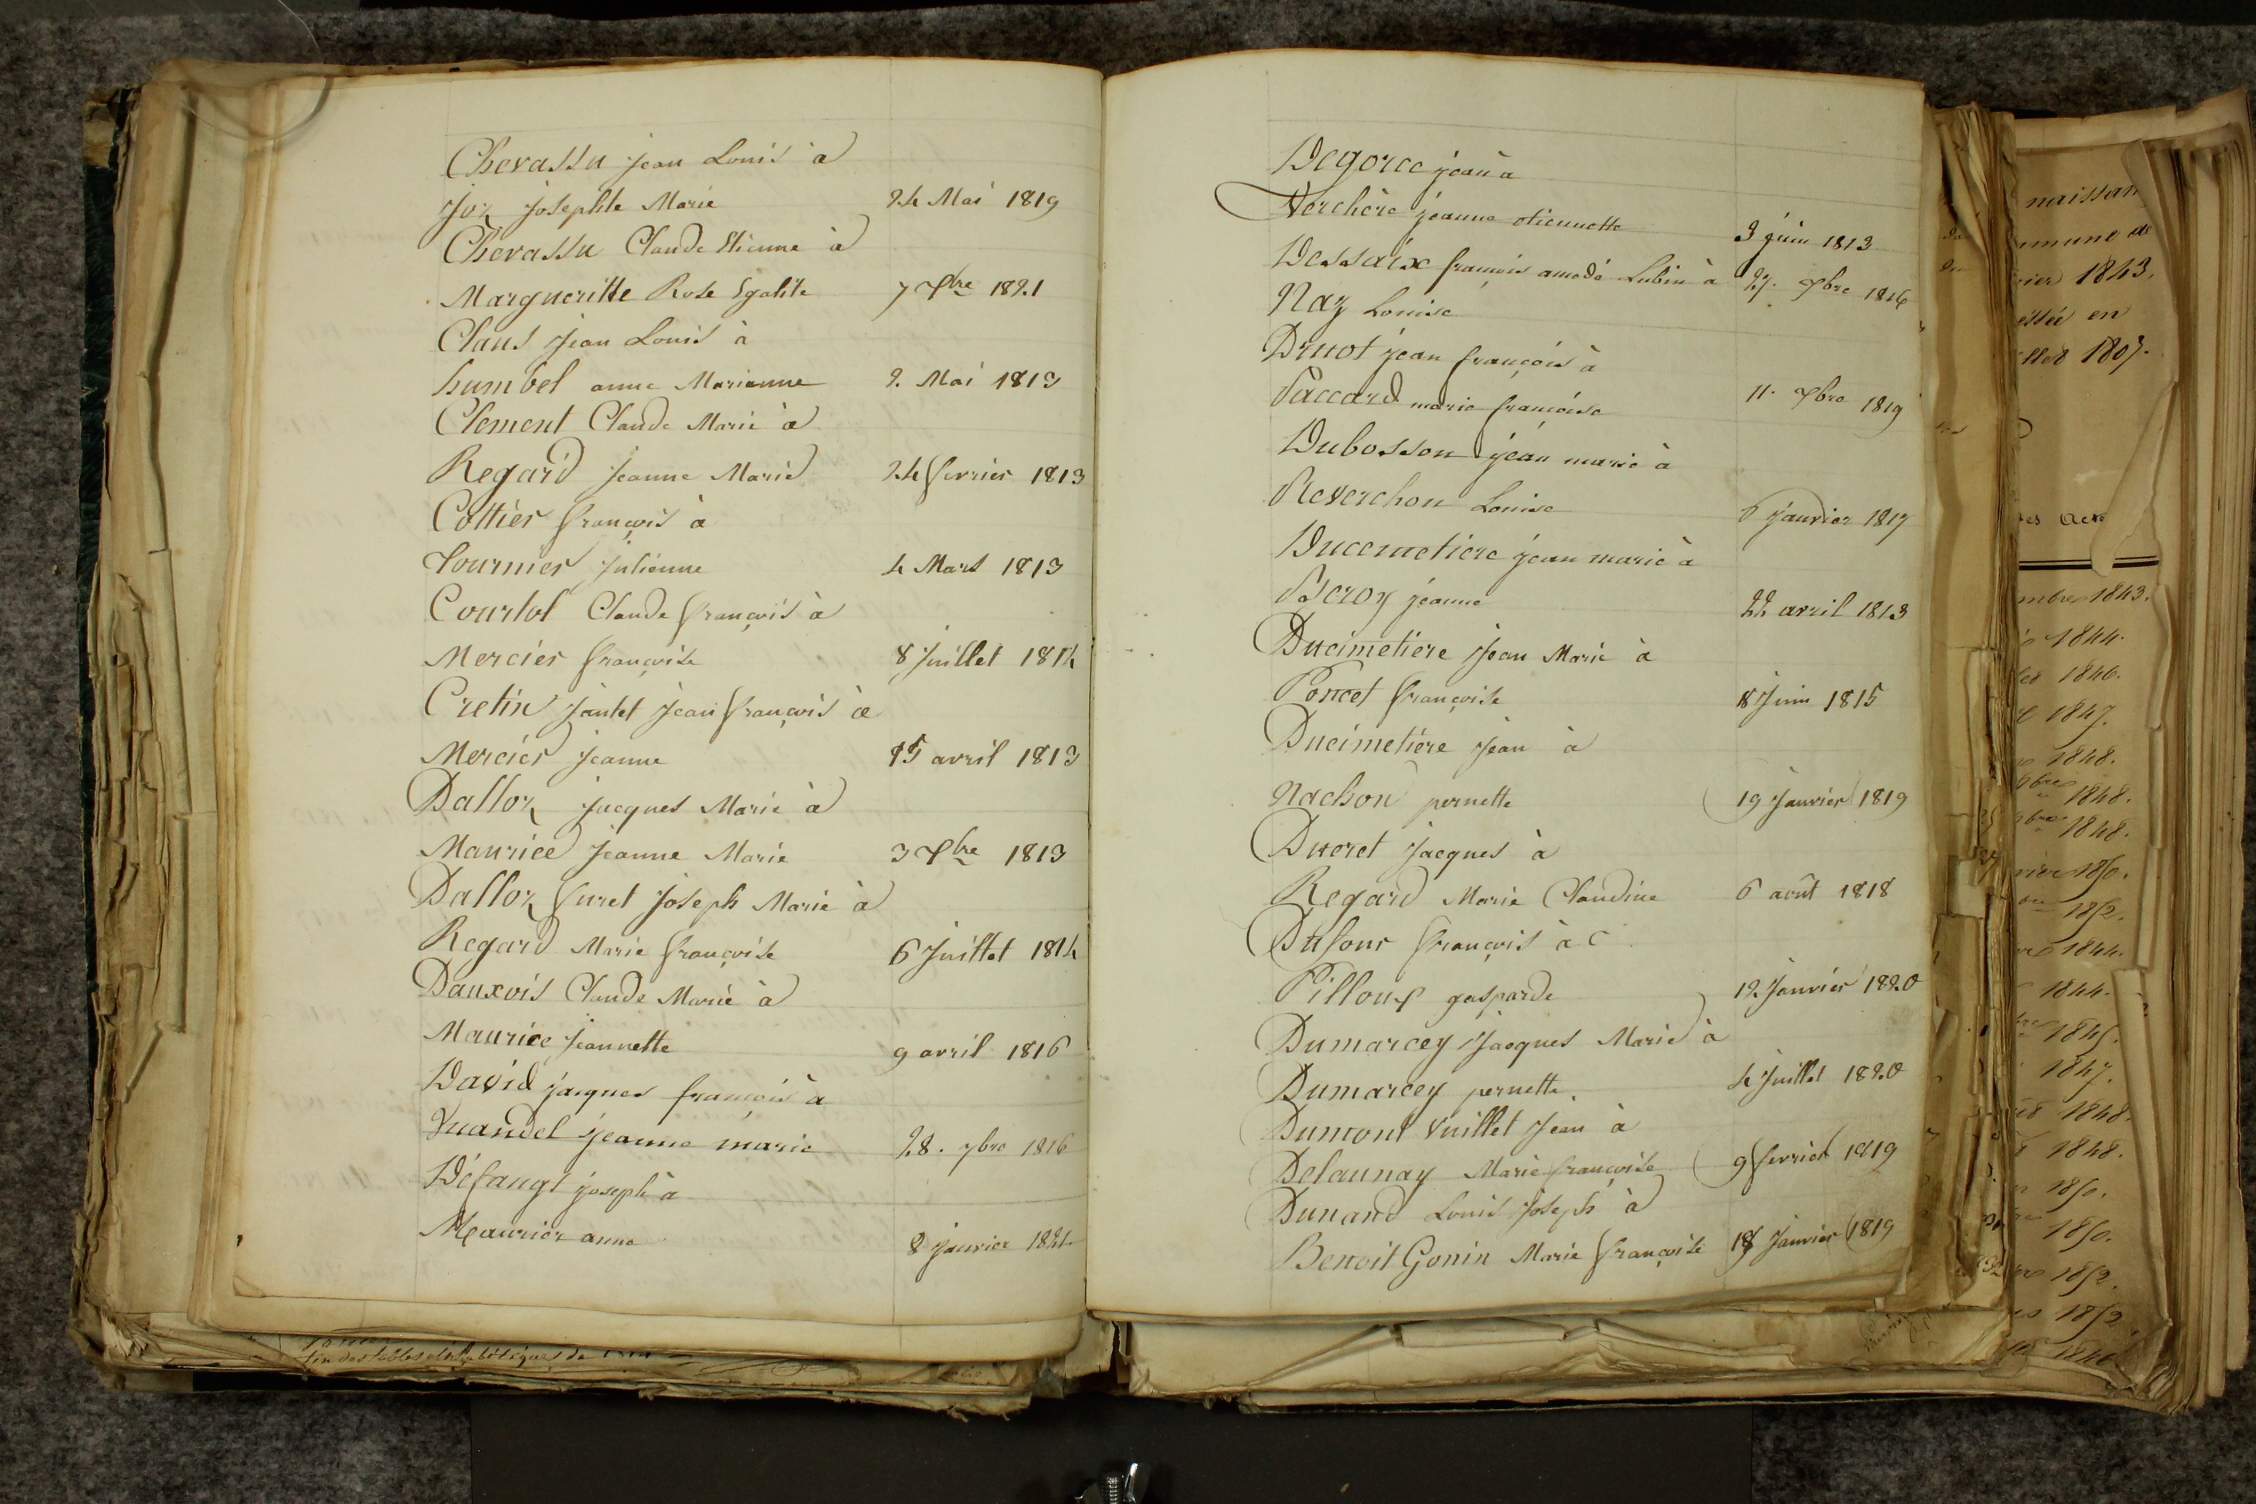 Chevassu jean Louis à
Joz Josephte Marie 24 Mai 1819
Chevassu Claude Etienne à
Margueritte Rose Egalité 7 Xbre 1821
Claus Jean Louis à
humbel anne Marianne 2. Mai 1813
Clement Claude Marie à
Regard Jeanne Marie 24 fevrier 1813
Cottier françois à
Tournier Julienne 4 Mars 1813
Courtot Claude françois à
Mercier françoise 8 Juillet 1814
Cretin Jantet Jean françois à
Mercier Jeanne 15 avril 1813
Dalloz Jacques Marie à
Maurice Jeanne Marie 3 Xbre 1813
Dalloz furet Joseph Marie à
Regard Marie françoise 6 Juillet 1814
Dauxois Claude Marie à
Maurice Jeannette 9 avril 1816
David jacques françois à
Vuandel jeanne marie 28. 7bre 1816
Défangt joseph à
Maurier anne 8 janvier 1821
Degorce jean à
Verchère jeanne etiennette 3 juin 1813
Dessaix françois amedé Lubin à 27. Xbre 1816
Naz Louise
Druot jean françois à
Paccard marie françoise 11. Xbre 1819
Dubosson jean marie à
Reverchon Louise 6 janvier 1817
Ducemetiere jean marie à
Beroy jeanne 22 avril 1813
Ducimetiere Jean Marie à
Poncet françoise 8 Juin 1815
Ducimetiere Jean à
Nachon pernette 19 Janvier 1819
Ducret Jacques à
Regard Marie Claudine 6 août 1818
Dufour françois à
Pilloux gasparde 12 Janvier 1820
Dumarcey Jacques Marie à
Dumarcey pernette 4 Juillet 1820
Dumont Vuillet Jean à
Delaunay Marie françoise 9 fevrier 1819
Dunand Louis Joseph à
Benoit Gonin Marie françoise 18 Janvier 1819